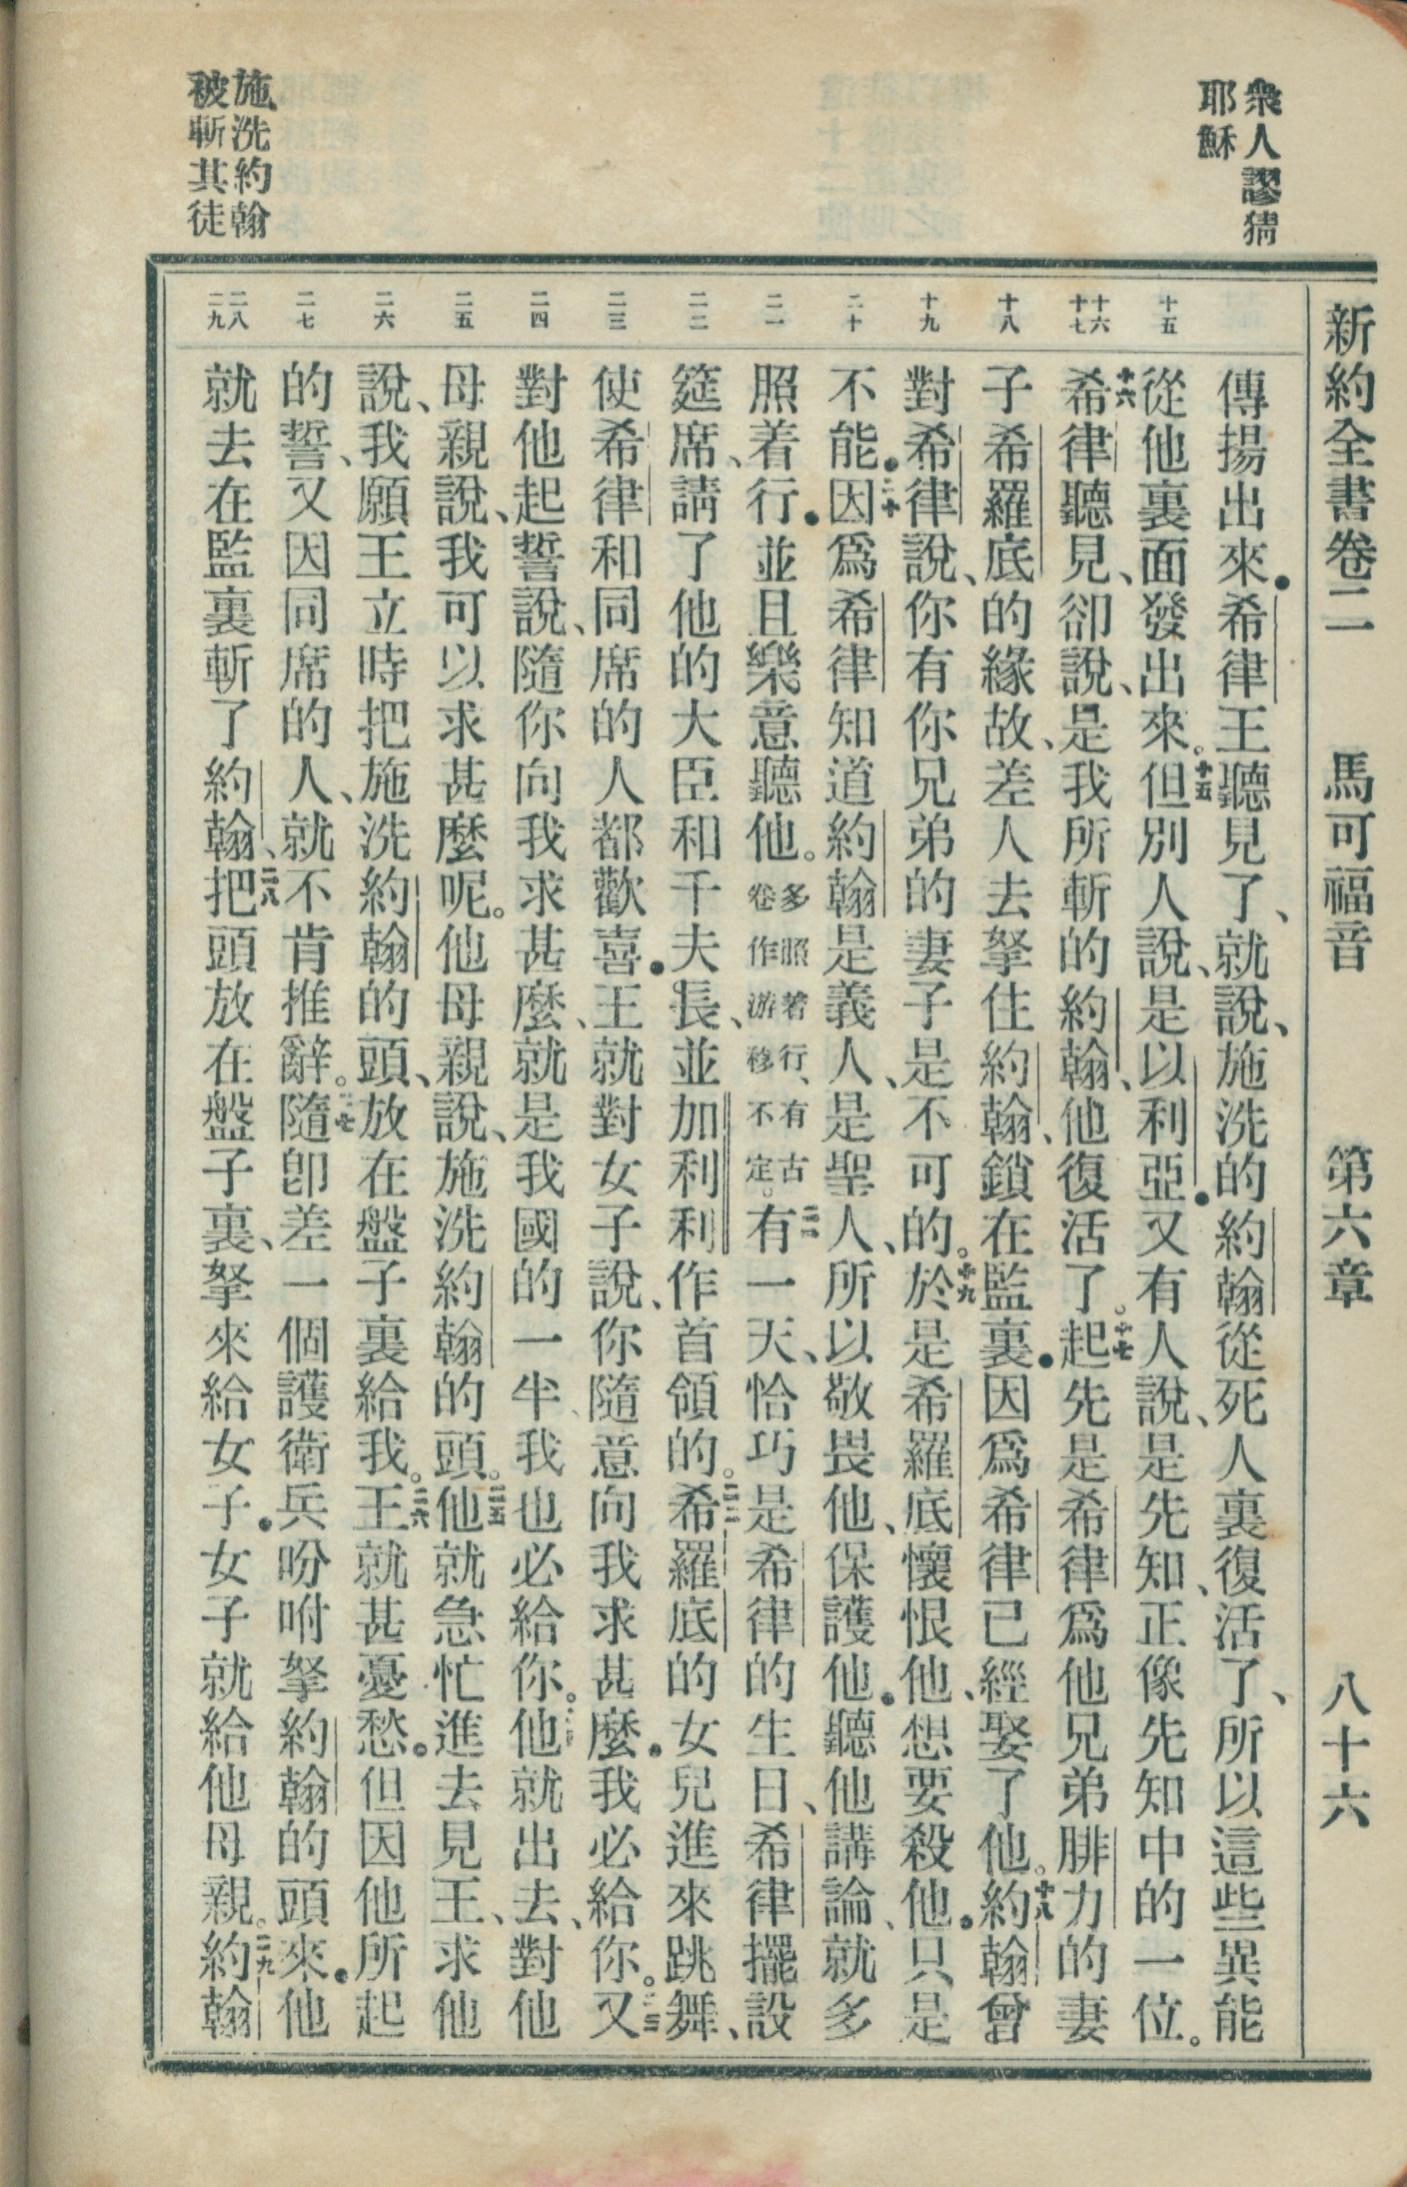 新約全書卷二　馬可福音　第六章　八十六
衆人謬猜
耶穌
施洗約翰
被斬其徒
十五
十六
十七
十八
十九
二十
二一
二二
二三
二四
二五
二六
二七
二八
二九
傳揚出來．希律王聽見了、就說、施洗的約翰從死人裏復活了、所以這些異能
從他裏面發出來。十五但別人說、是以利亞．又有人說、是先知、正像先知中的一位。
十六希律聽見、卻說、是我所斬的約翰、他復活了。十七起先是希律爲他兄弟腓力的妻
子希羅底的緣故、差人去拏住約翰、鎖在監裏．因爲希律已經娶了他。十八約翰曾
對希律說、你有你兄弟的妻子是不可的。十九於是希羅底懷恨他、想要殺他．只是
不能．二十因爲希律知道約翰是義人、是聖人、所以敬畏他、保護他．聽他講論、就多
照着行．並且樂意聽他。多照着行、有古卷作游移不定。二一有一天、恰巧是希律的生日、希律擺設
筵席、請了他的大臣和千夫長、並加利利作首領的。二二希羅底的女兒進來跳舞、
使希律和同席的人都歡喜．王就對女子說、你隨意向我求甚麼．我必給你。二三又
對他起誓說、隨你向我求甚麼、就是我國的一半、我也必給你。二四他就出去、對他
母親說、我可以求甚麼呢。他母親說、施洗約翰的頭。二五他就急忙進去見王、求他
說、我願王立時把施洗約翰的頭、放在盤子裏給我。二六王就甚憂愁．但因他所起
的誓、又因同席的人、就不肯推辭。二七隨卽差一個護衛兵吩咐拏約翰的頭來．他
就去在監裏斬了約翰、二八把頭放在盤子裏、拏來給女子．女子就給他母親。二九約翰